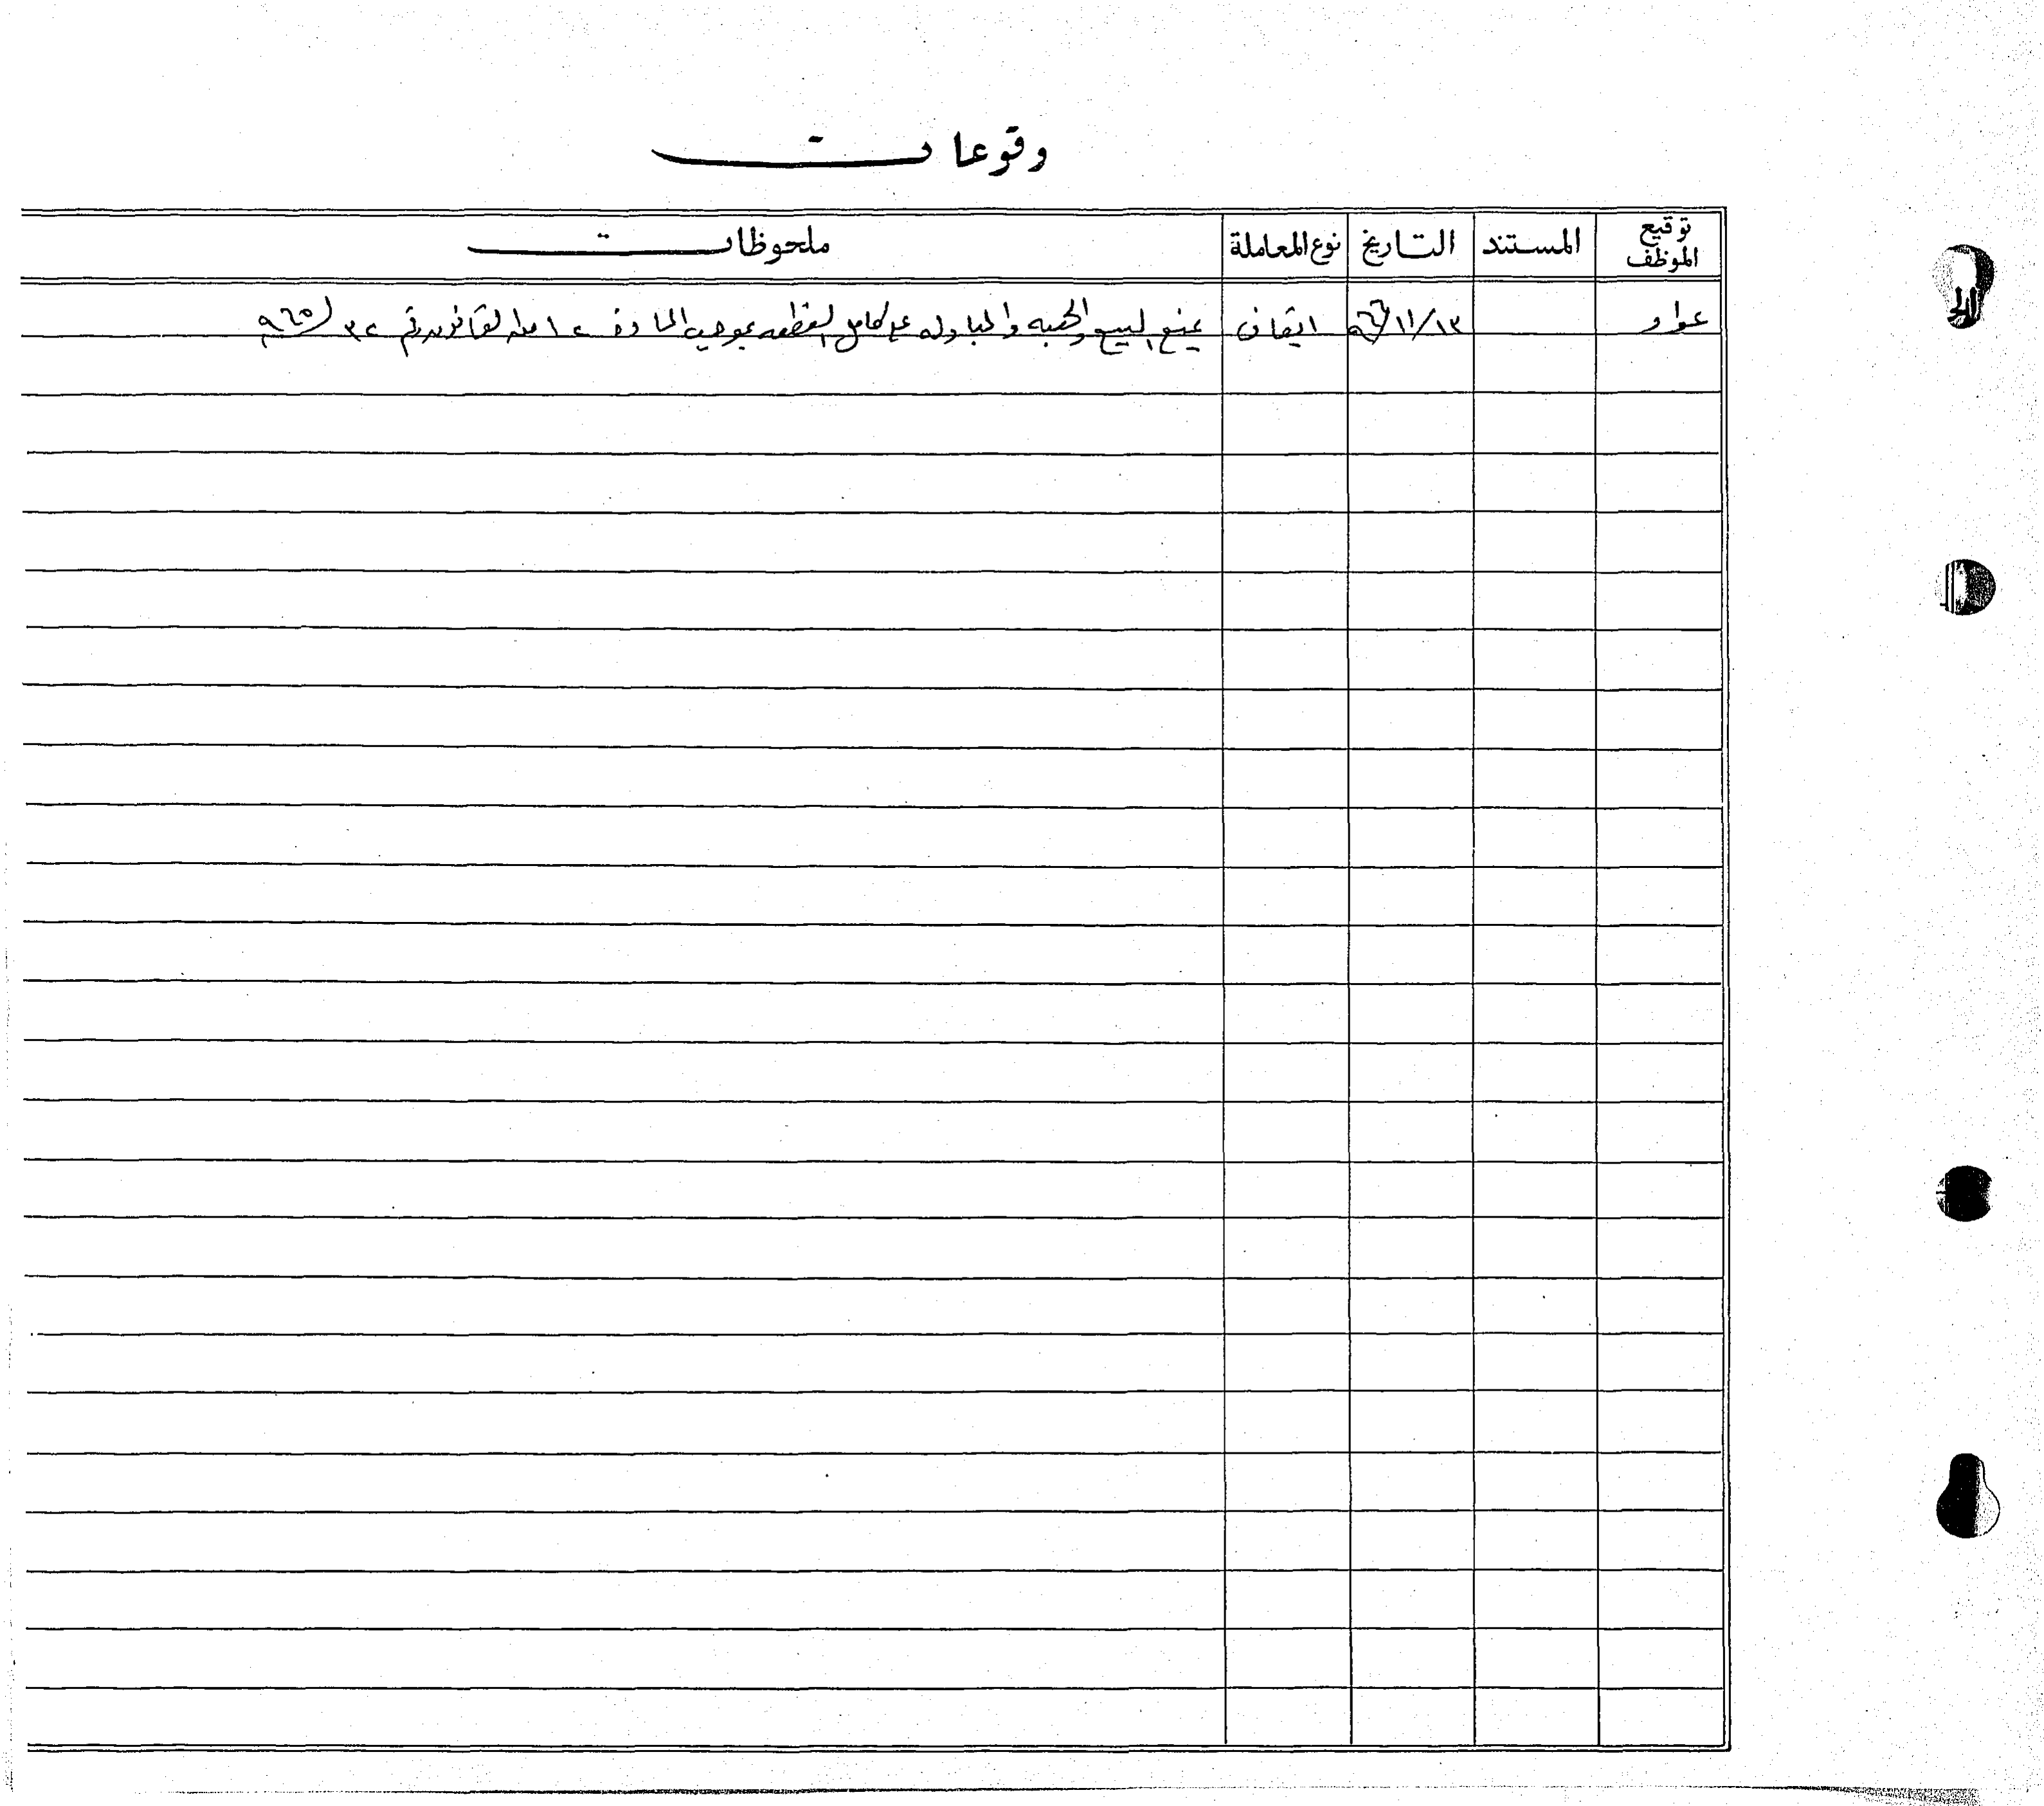 وقوعات
توقيع الموظف المستند التاريخ نوع المعاملة ملحوظات
عواد ١٣/١١/ ايقاف يمنع البيع والهبه والمبادله على كامل القطعه بموجب الماده ١٢ من القانون رقم ٣٢ / ٩٦٥